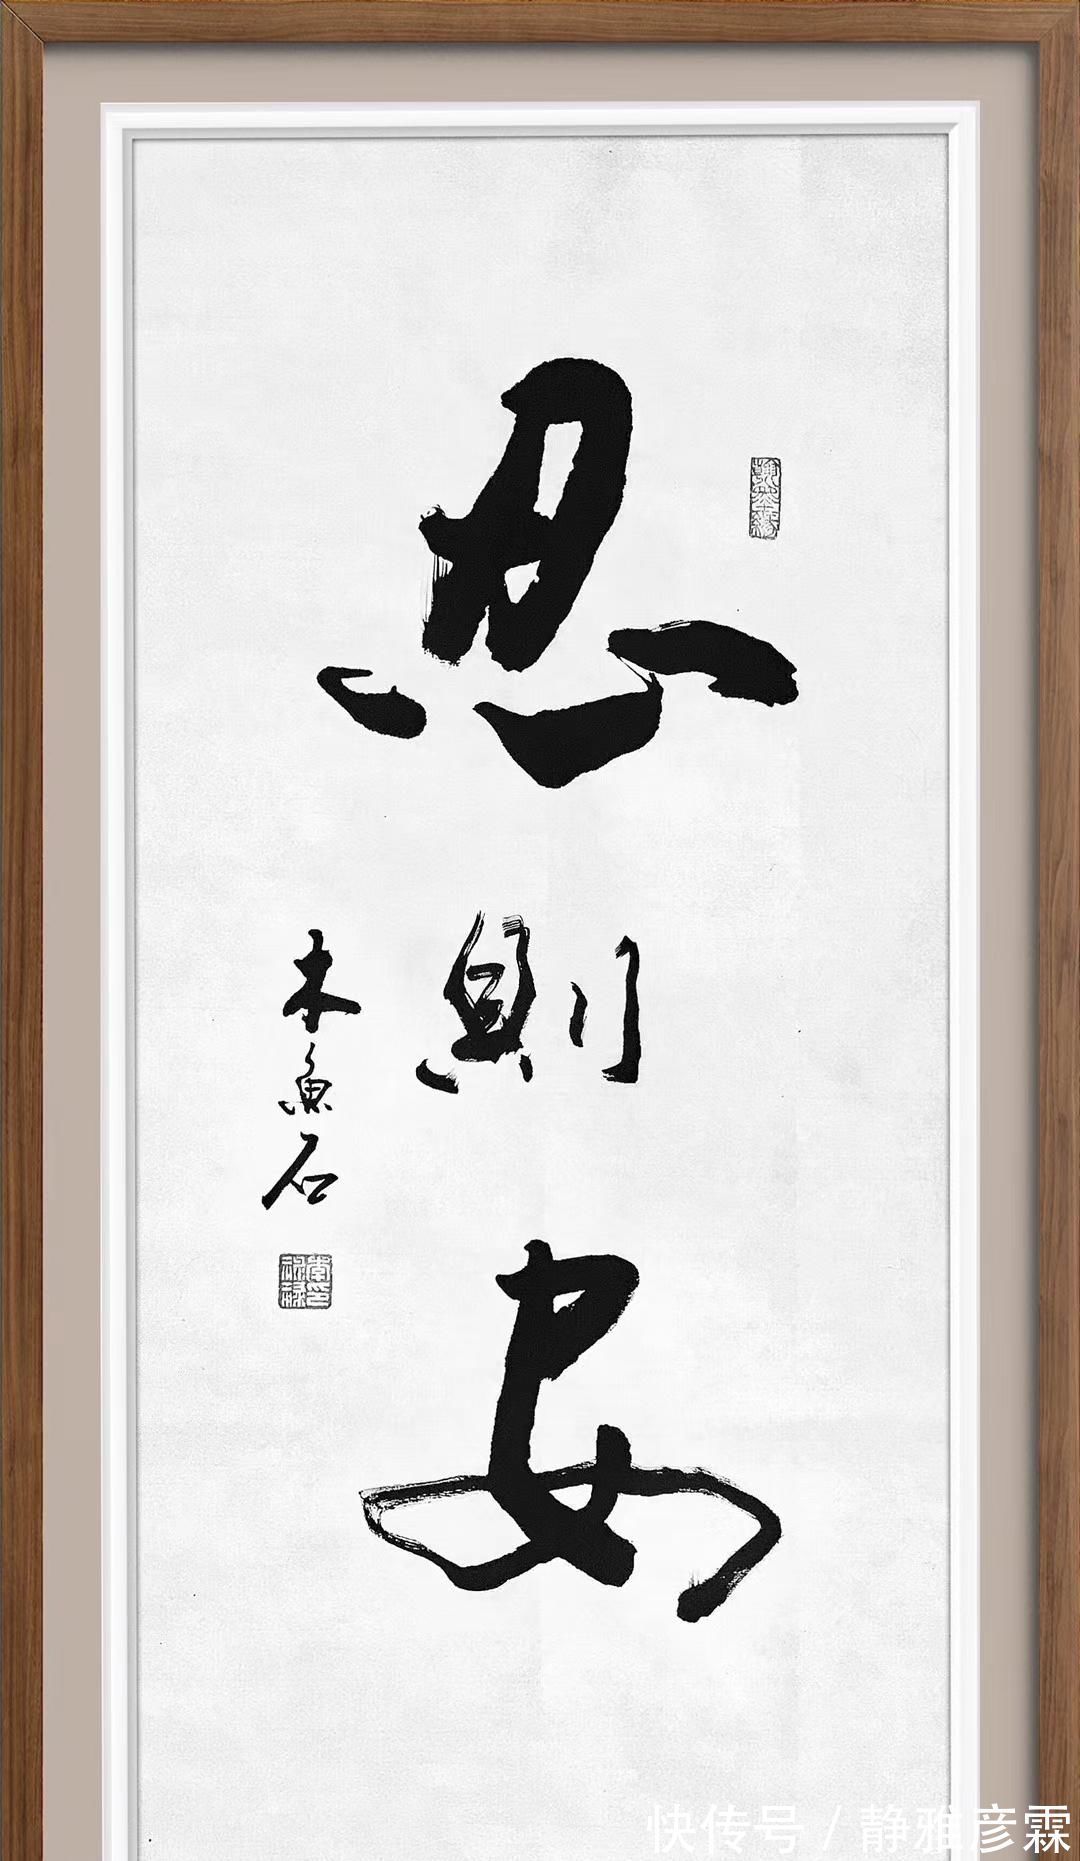 忍則安
木魚石
快传号 / 静雅彦霖